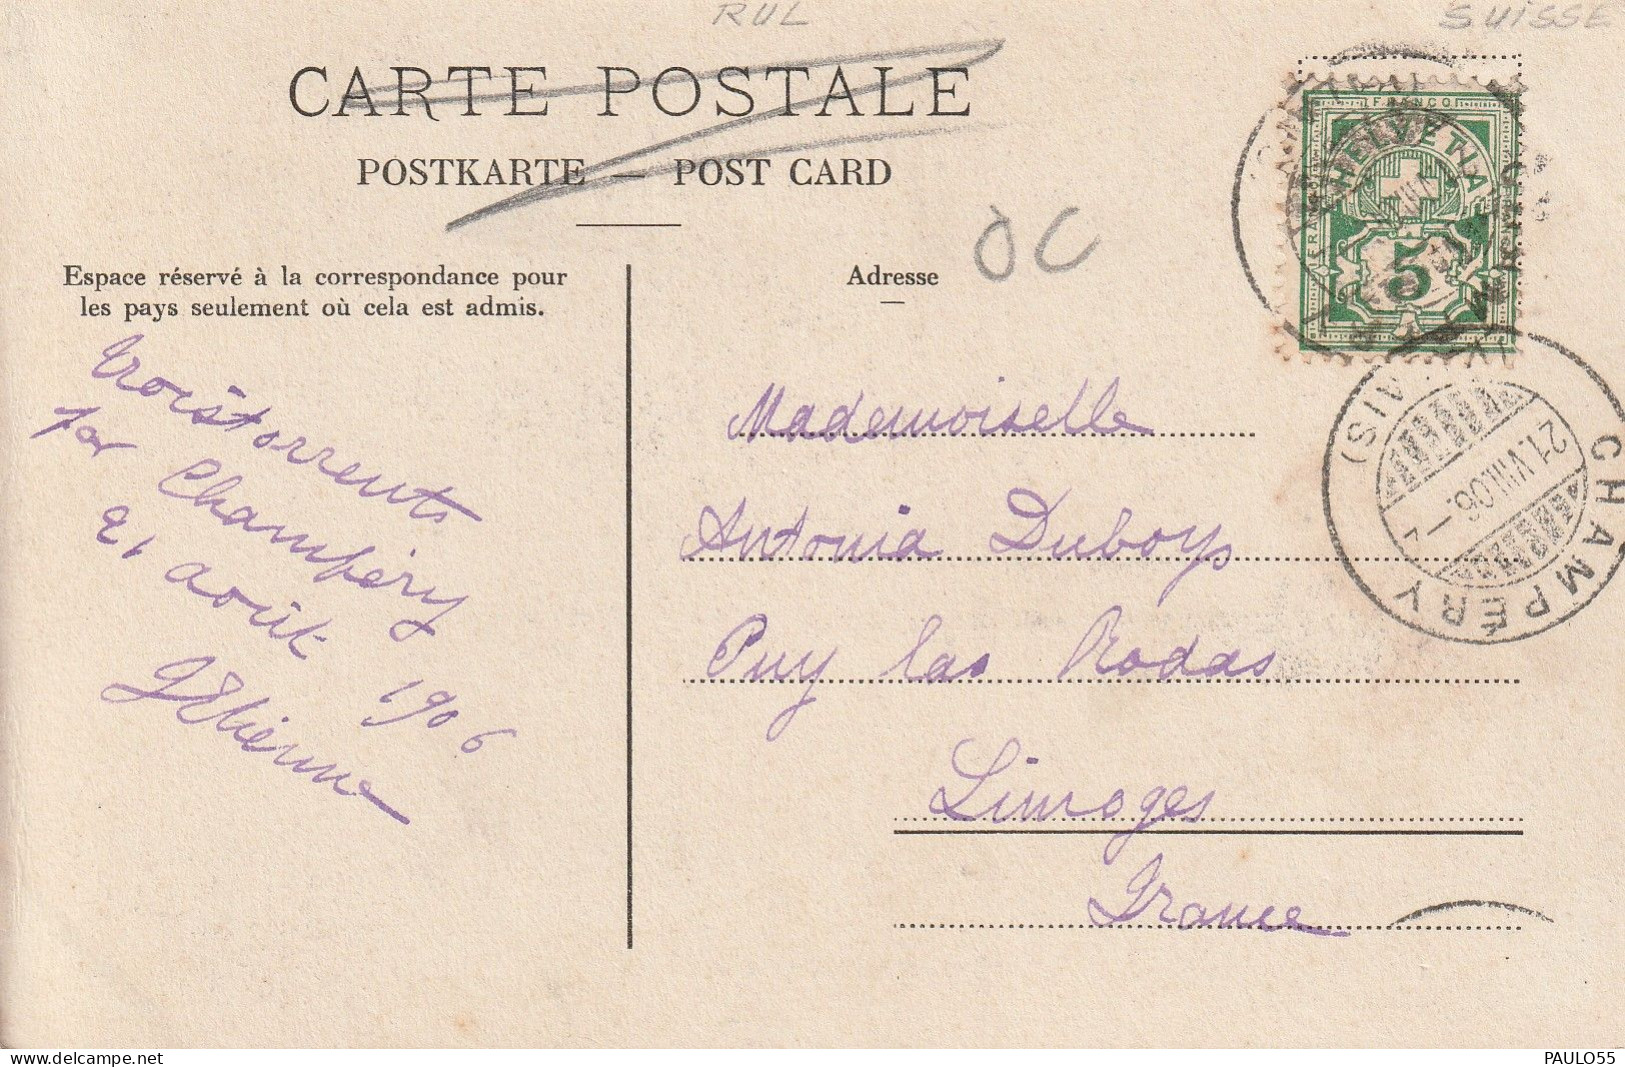 RUL
SUISSE
CARTE POSTALE
POSTKARTE — POST CARD
Espace réservé à la correspondance pour
les pays seulement où cela est admis.
Adresse
OC
FRANCO
HELVETIA
5
CHAMPÉRY
21.VIII.06.
Troistorrents
par Champéry
21 août 1906
JEtienne
Mademoiselle
Antonia Duboys
Puy las Rodas
Limoges
France
PAULO55